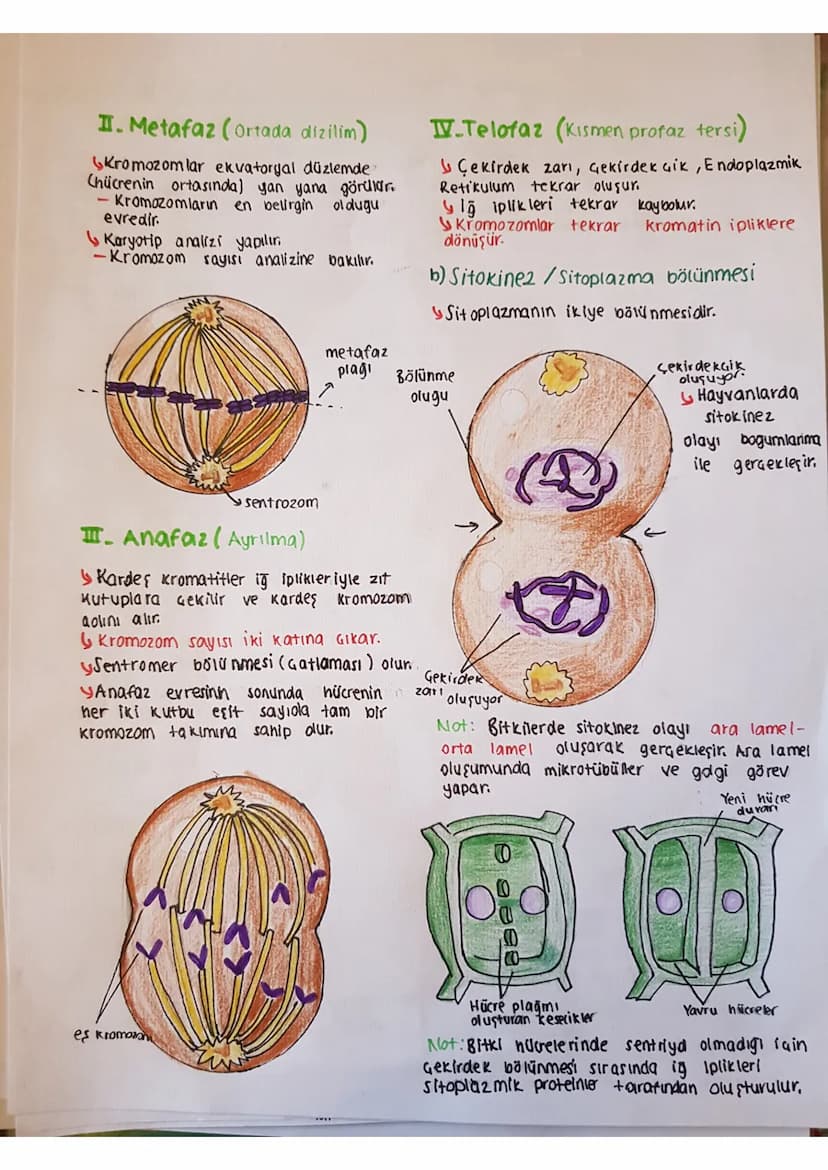 II- Metafaz (Ortada dizilim)
↳Kromozomlar ekvatoryal düzlemde
(hücrenin ortasında) yan yana görülür.
- Kromozomların en belirgin olduğu
evredir.
↳ Karyotip analizi yapılır.
- Kromozom sayısı analizine bakılır.
metafaz
plağı
sentrozom
III- Anafaz (Ayrılma)
↳ Kardeş kromatitler iğ iplikleriyle zıt
kutuplara çekilir ve kardeş kromozom
adını alır.
↳ Kromozom sayısı iki katına çıkar.
↳Sentromer bölünmesi (çatlaması) olur.
↳Anafaz evresinin sonunda hücrenin
her iki kutbu eşit sayıda tam bir
kromozom takımına sahip olur.
eş kromozom
IV-Telofaz (Kısmen profaz tersi)
↳ Çekirdek zarı, çekirdekçik, Endoplazmik
Retikulum tekrar oluşur.
↳ İğ iplikleri tekrar kaybolur.
↳Kromozomlar tekrar kromatin ipliklere
dönüşür.
b) Sitokinez / Sitoplazma bölünmesi
↳ Sitoplazmanın ikiye bölünmesidir.
Bölünme
oluğu
çekirdekçik
oluşuyor.
↳ Hayvanlarda
sitokinez
olayı boğumlanma
ile gerçekleşir.
Çekirdek
zarı oluşuyor
Not: Bitkilerde sitokinez olayı ara lamel-
orta lamel oluşarak gerçekleşir. Ara lamel
oluşumunda mikrotübüller ve golgi görev
yapar.
Yeni hücre
duvarı
Hücre plağını
oluşturan kesecikler
Yavru hücreler
Not: Bitki hücrelerinde sentriyol olmadığı için
çekirdek bölünmesi sırasında iğ iplikleri
sitoplazmik proteinler tarafından oluşturulur.